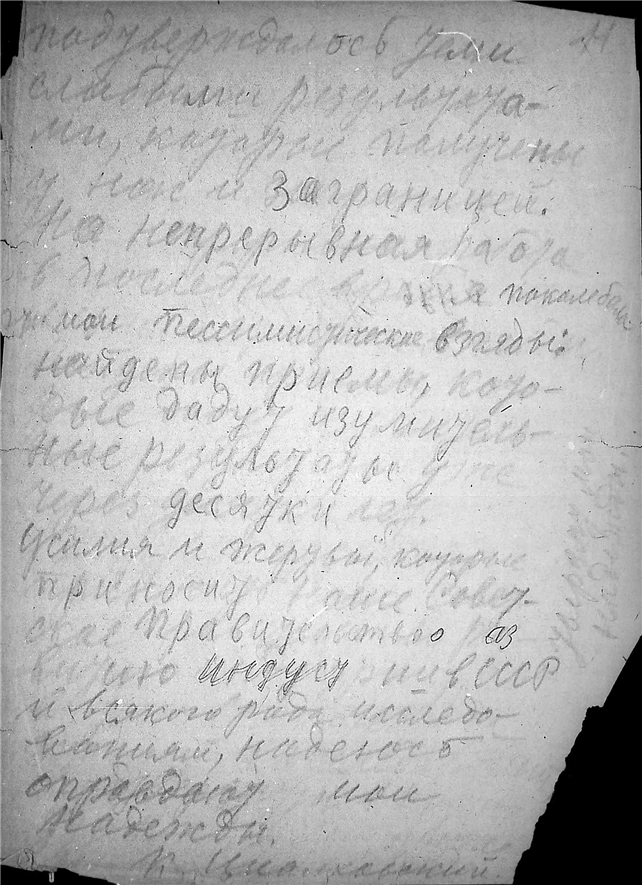 11
подтверждалось теми
слабыми результата-
ми, которые получены
у нас и заграницей.
Но непрерывная работа
в последнее время поколебала
эти мои пессимистические взгляды:
найдены приемы, кото-
рые дадут изумитель-
ные результаты уже
через десятки лет.
Усилия и жертвы, которые
приносит наше Совет-
ское Правительство раз
витию индустрии в СССР
и всякого рода исследо-
ваниям, надеюсь
оправдают мои
надежды.
К. Циолковский